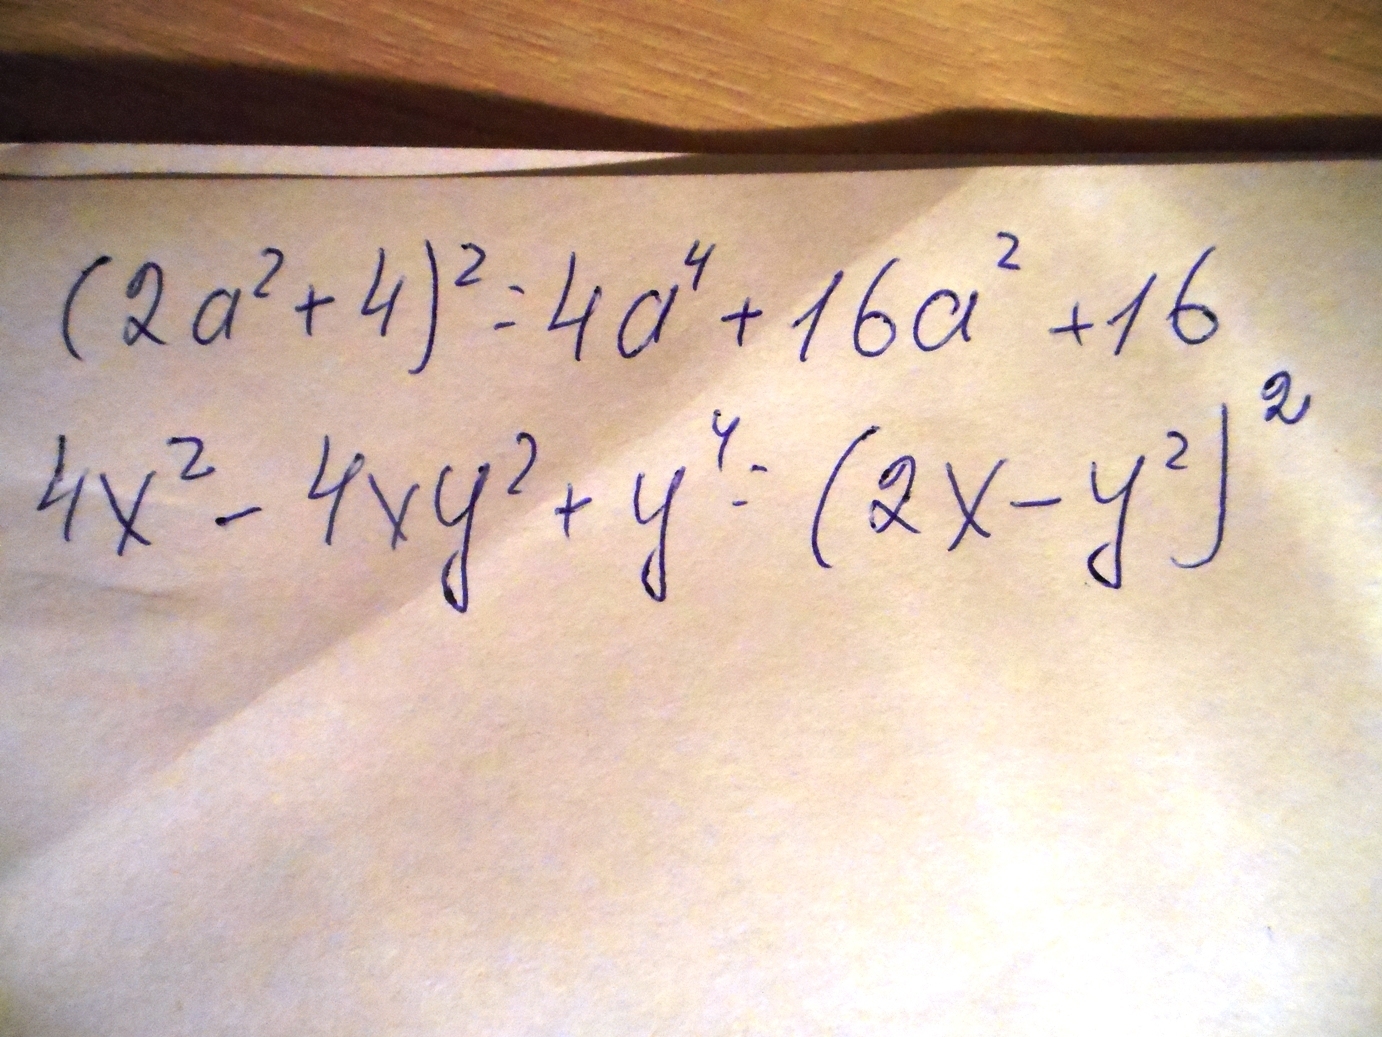 (2a²+4)²=4a⁴+16a²+16
4x²-4xy²+y⁴=(2x-y²)²